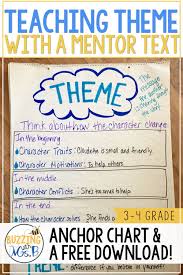 TEACHING THEME
WITH A MENTOR TEXT
The message
THEME
Think about how the character changes
In the beginning
Character Traits: Clodette is small and friendly
Character Motivations: To help others
In the middle
Character Conflicts: She's too small to help
In the end
How the character solves: She finds a
BUZZING
WITH
MS. B
3-4 GRADE
ANCHOR CHART &
A FREE DOWNLOAD!